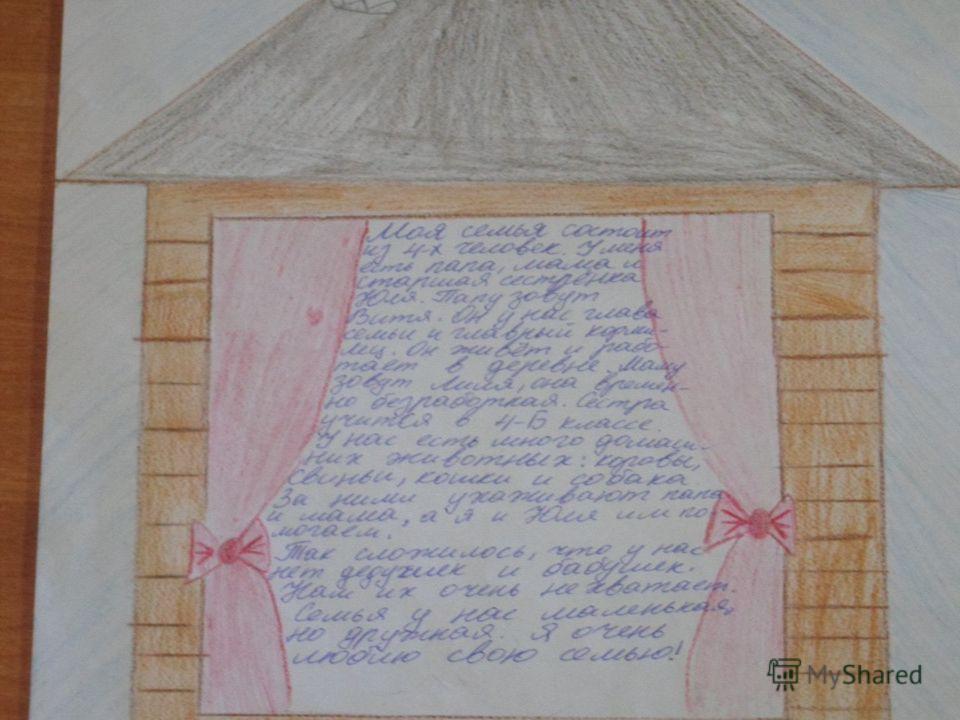 Моя семья состоит
из 4-х человек. У меня
есть папа, мама и
старшая сестрёнка
Юля. Папу зовут
Витя. Он у нас глава
семьи и главный корми-
лец. Он живёт и рабо-
тает в деревне. Маму
зовут Лиля, она времен-
но безработная. Сестра
учится в 4-Б классе.
У нас есть много домаш-
них животных: коровы,
свиньи, кошки и собака
За ними ухаживают папа
и мама, а я и Юля им по
могаем.
Так сложилось, что у нас
нет дедушек и бабушек.
Нам их очень не хватает.
Семья у нас маленькая,
но дружная. Я очень
люблю свою семью!
MyShared